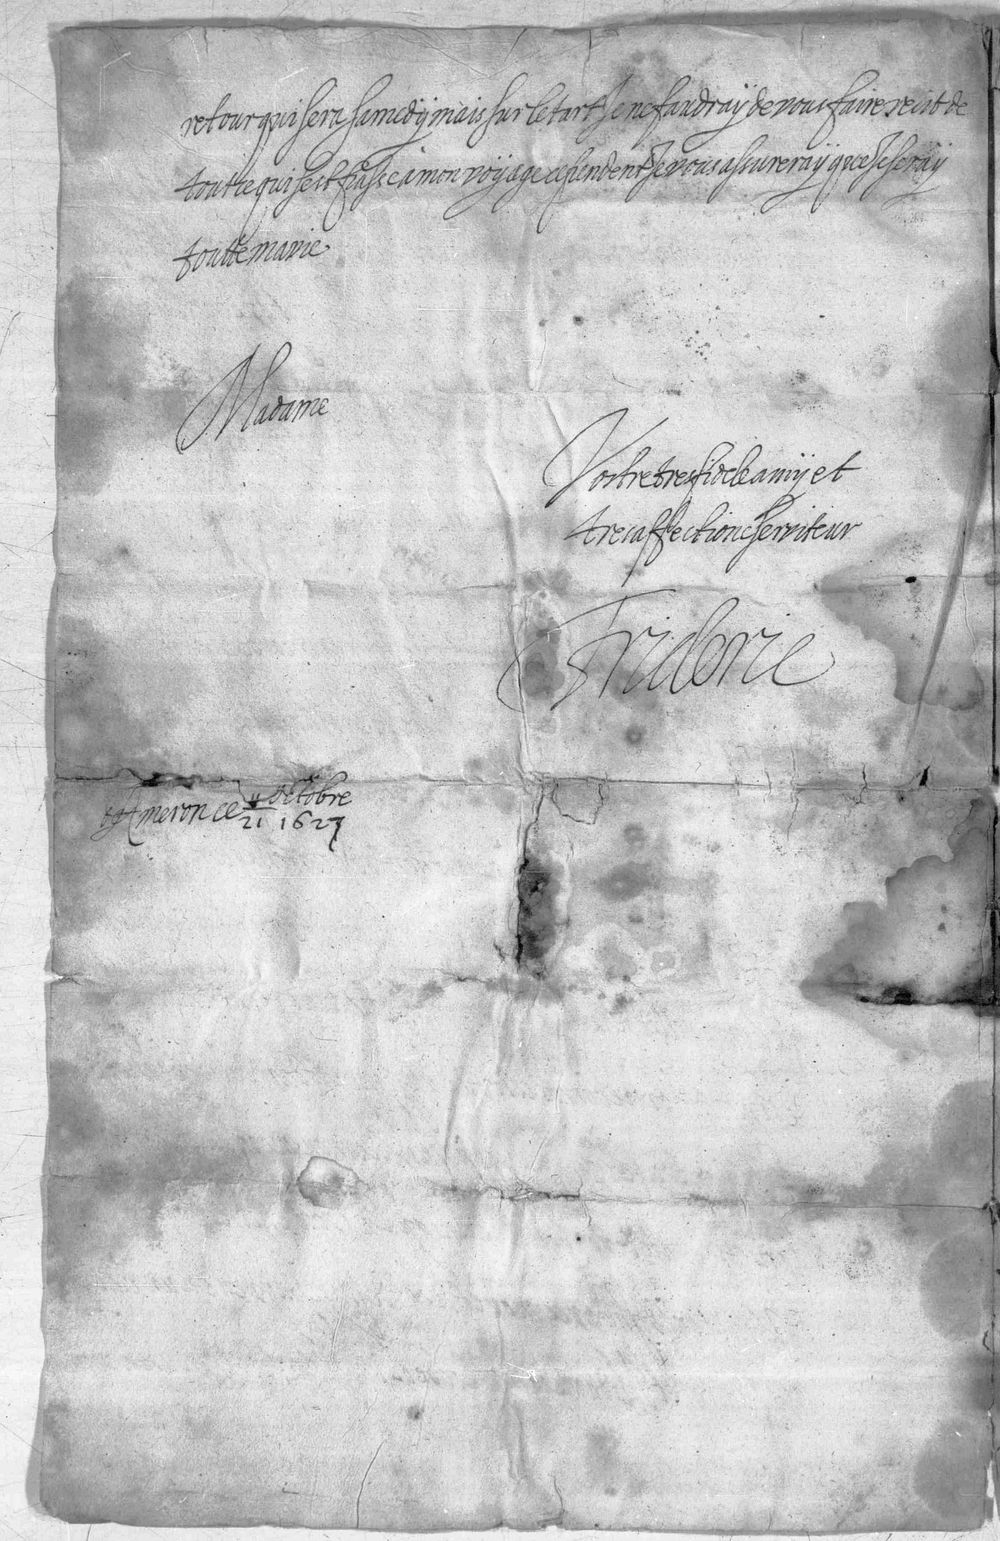 retour qui sera samedy mais sur le tart Je ne faudray de vous faire recit de
tout ce qui sest passe a mon voyage cependent Je vous assureray que Je seray
toutte ma vie
Madame
Vostre tresfidele amy et
tres affectioné serviteur
Frideric
ce 11/21 octobre
1627